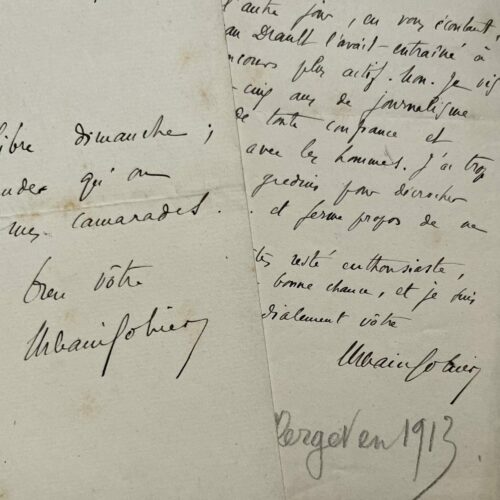 libre dimanche ;
qu'on
mes camarades.
bien vôtre
Urbain Gohier
l'autre jour, en vous écoutant,
Drault l'avait entraîné à
concours plus actif. Non. Je vis
-cinq ans de journalisme
de toute confiance et
avec les hommes. J'ai trop
gredins pour décrocher
et ferme propos de ne
resté enthousiaste,
bonne chance, et je suis
cordialement vôtre
Urbain Gohier
en 1913